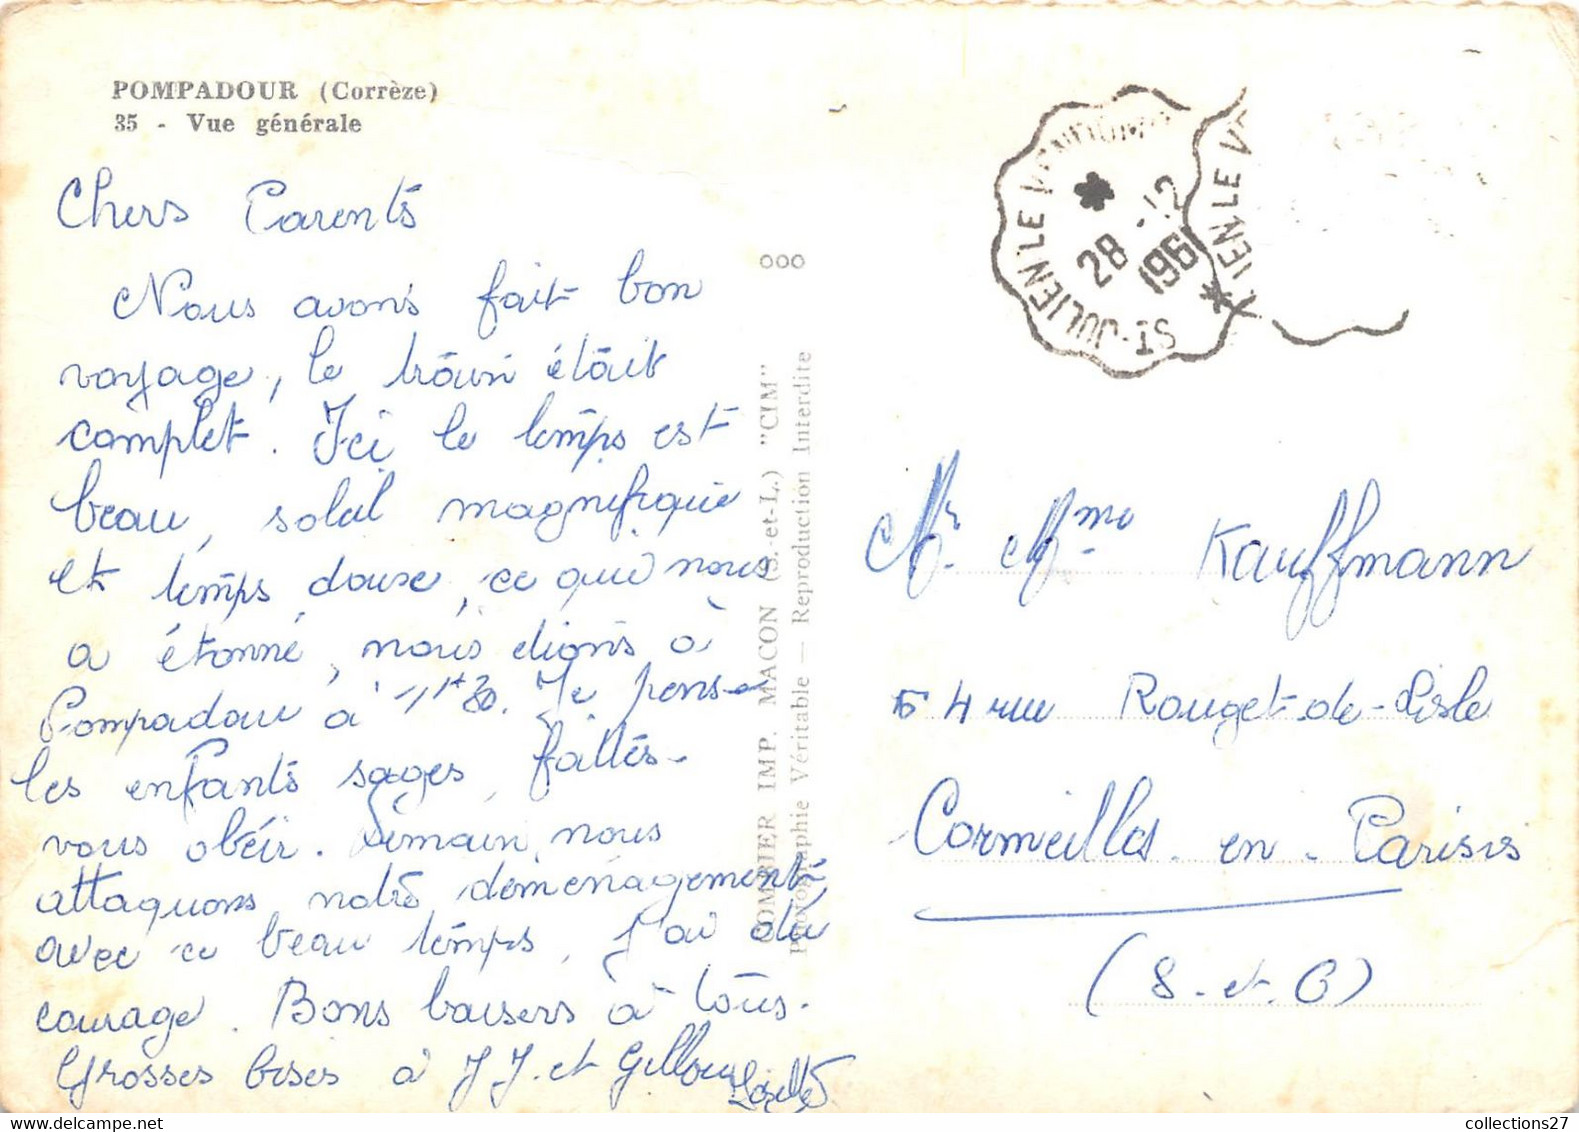 POMPADOUR (Corrèze)
35 - Vue générale
Chers Parents
Nous avons fait bon
voyage, le train était
complet. Ici le temps est
beau, soleil magnifique
et temps douse, ce qui nous
a étonné, nous étions à
Pompadour à 11H30. Je pense
les enfants sages, faites-
vous obéir. Demain, nous
attaquons notre déménagement,
avec ce beau temps, j'ai du
courage. Bons baisers à tous.
Grosses bises à J J. et
ooo
COMBIER IMP. MACON (S.-et-L.) "CIM"
Photographie Véritable — Reproduction Interdite
ST-JULIEN LE
28 -12
1961
IEN LE V
Mr. Mme Kauffmann
54 rue Rouget-de-Lisle
Cormeilles. en. Parisis
(S. et. O)
collections27